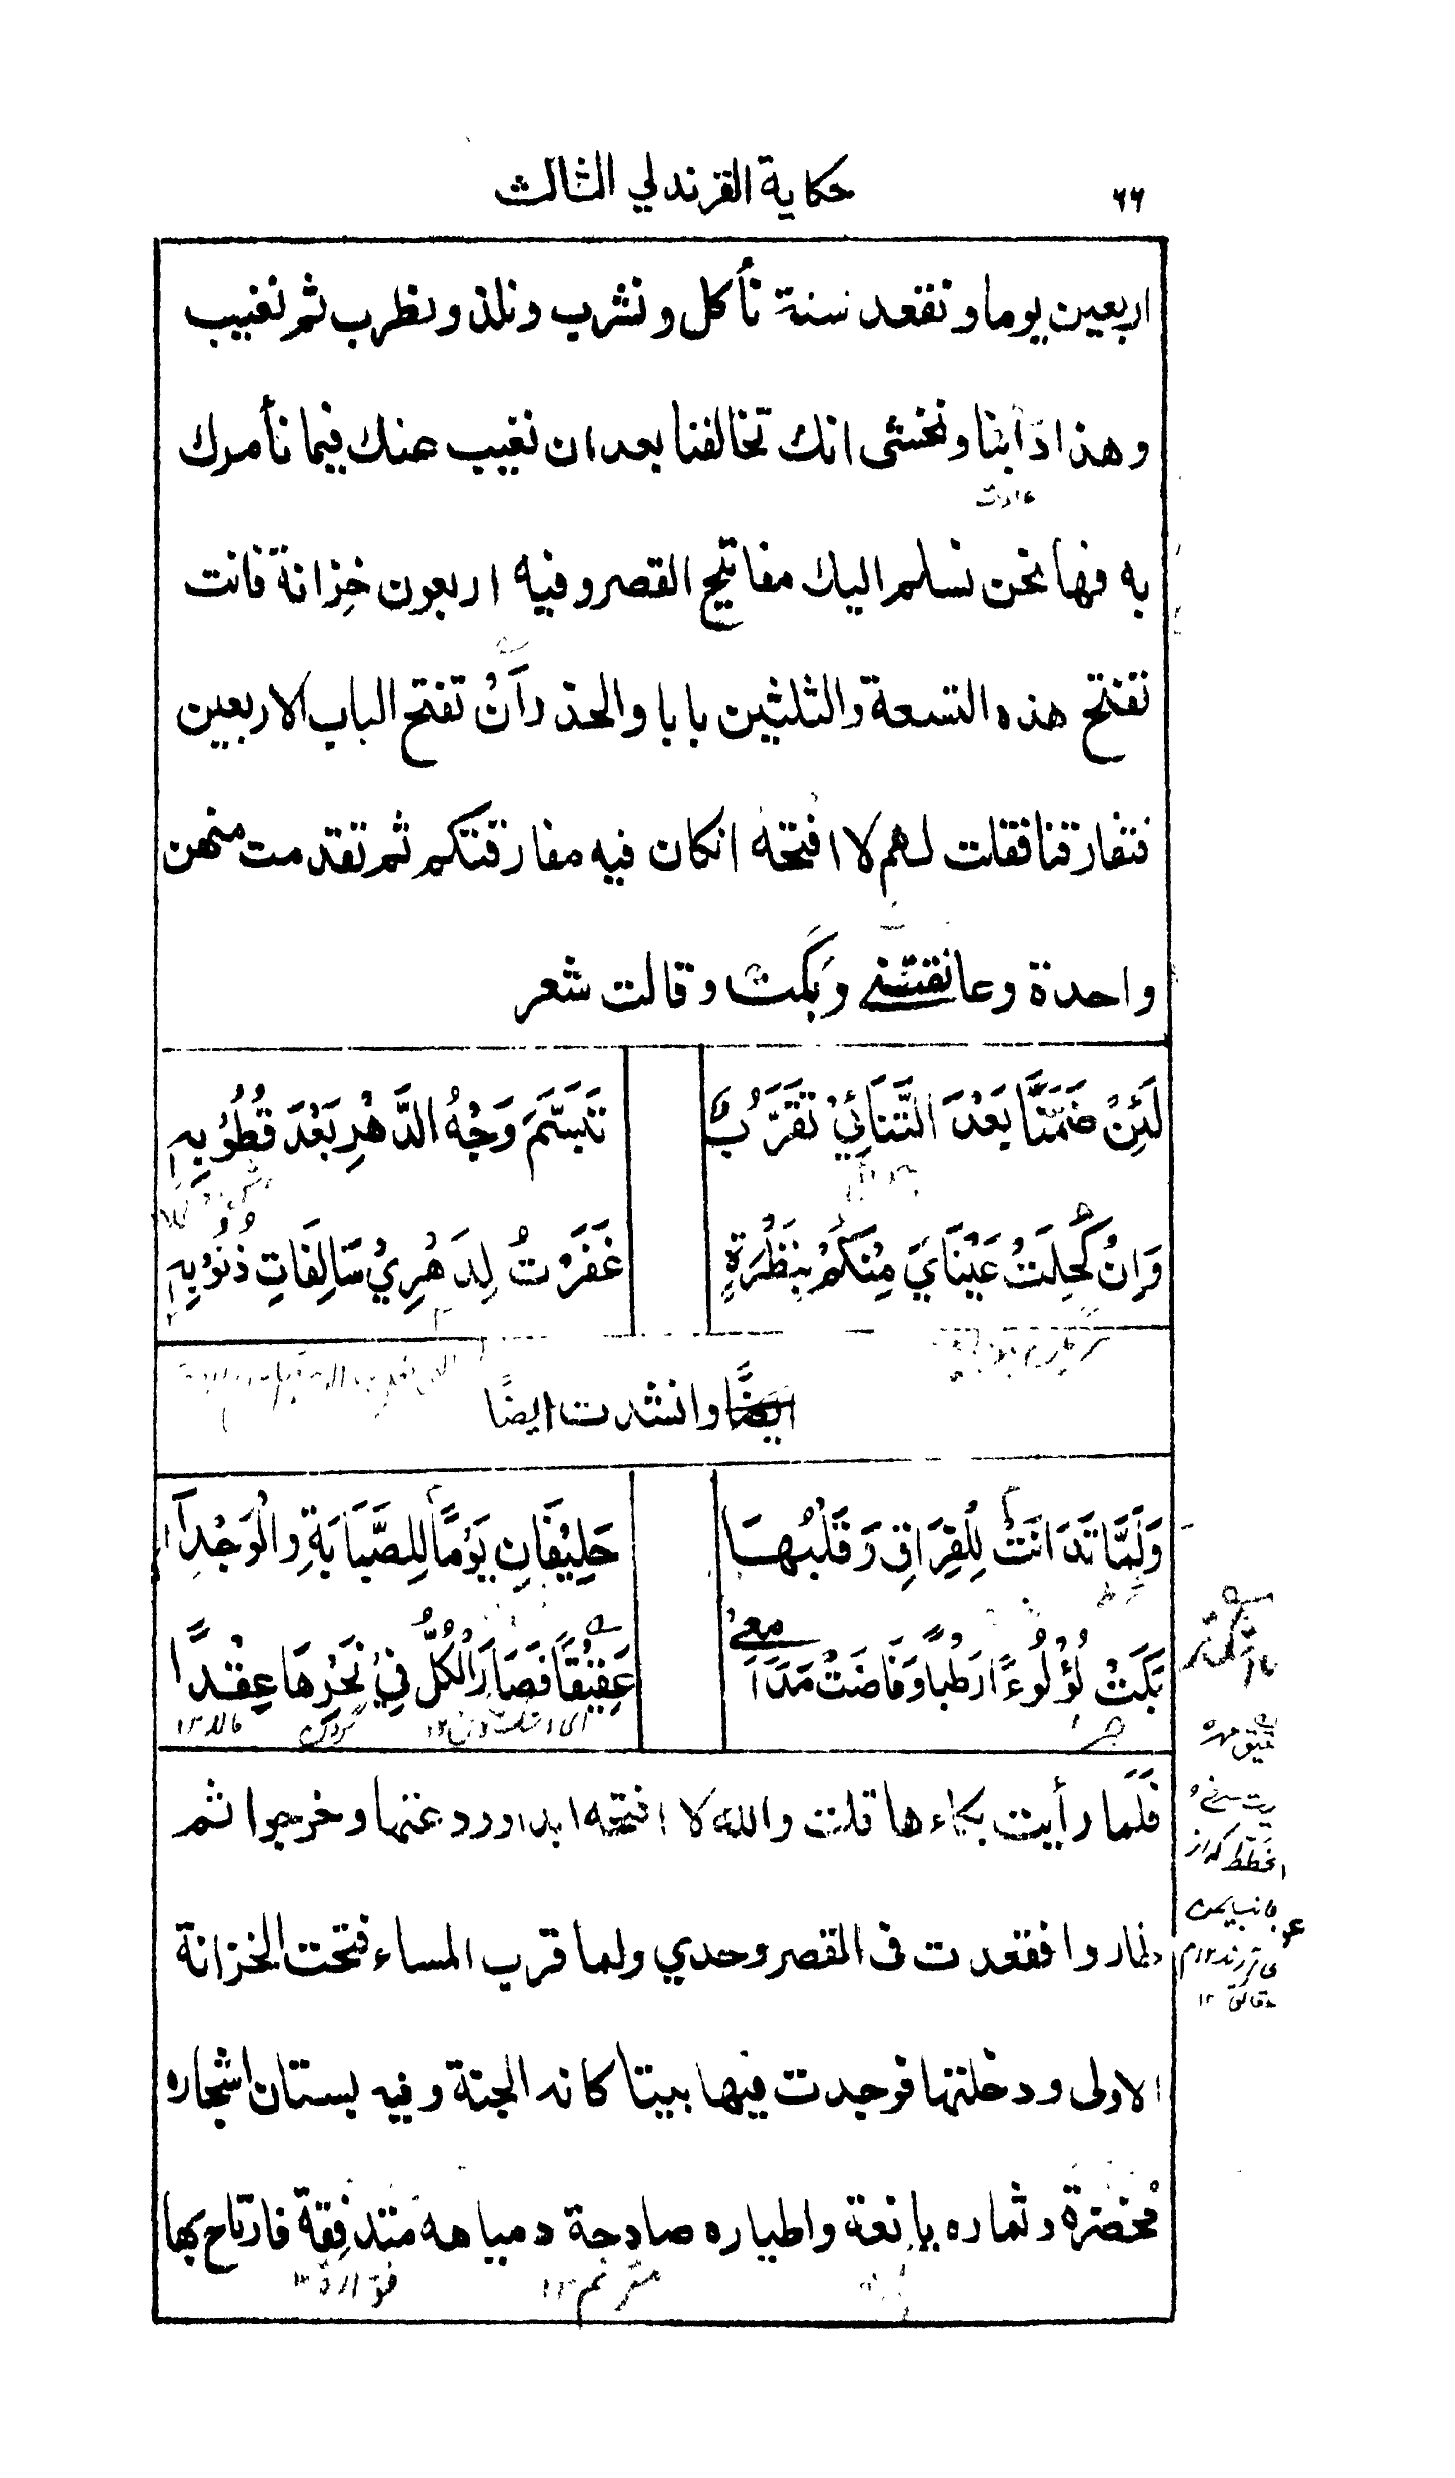 ٦٦ حكاية القرندلي الثالث
اربعين يوما و نقعد سنة نأكل و نشرب و نلذ و نطرب ثم نغيب
و هذا دَأبنا و نخشى انك تخالفنا بعد ان نغيب عنك فيما نأمرك
عادت
به فها نحن نسلم اليك مفاتيح القصر و فيه اربعون خِزانة فانت
تفتح هذه التسعة والثلثين بابا والحذر اَنْ تفتح الباب الاربعين
فتفارقنا فقلت لهم لا افتحه انكان فيه مفارقتكم ثم تقدمت منهن
واحدة وعانقتني وبَكَت وقالت شعر
لَئِنْ ضَمَّنَا بَعْدَ التَّنَائِيْ تَقَرُّبٌ تَبَسَّمَ وَجْهُ الدَّهْرِ بَعْدَ قُطُوْبِهِ
وَاِنْ كُحِلَتْ عَيْنَايَ مِنْكُمْ بِنَظْرَةٍ غَفَرْتُ لِدَهْرِيْ سَالِفَاتِ ذُنُوْبِهِ
ايضًا وانشدت ايضًا
وَلَمَّا تَدَانَتْ لِلْفِرَاقِ وَقَلْبُهَا حَلِيْفَانِ يَوْمًا لِلصَّبَابَةِ وَالْوَجْدِ
معي
بَكَتْ لُؤْلُوءً ارَطْبًا وَفَاضَتْ مَدَا عَقِيْقًا فَصَارَ الْكُلُّ فِيْ نَحْرِهَا عِقْدًا
گردن
فَلَمّا رأيت بكاءها قلت والله لا افتحه ابدا وردعنها وخرجوا ثم
طاروا فقعدت فى القصر وحدي ولما قرب المساء فتحت الخزانة
الاولى ودخلتها فوجدت فيها بيتا كانه الجنة وفيه بستان اشجاره
مُخضرة وثماره يانعة واطياره صادحة ومياهه متدفِقة فارتاح بها
مترنم ١٢